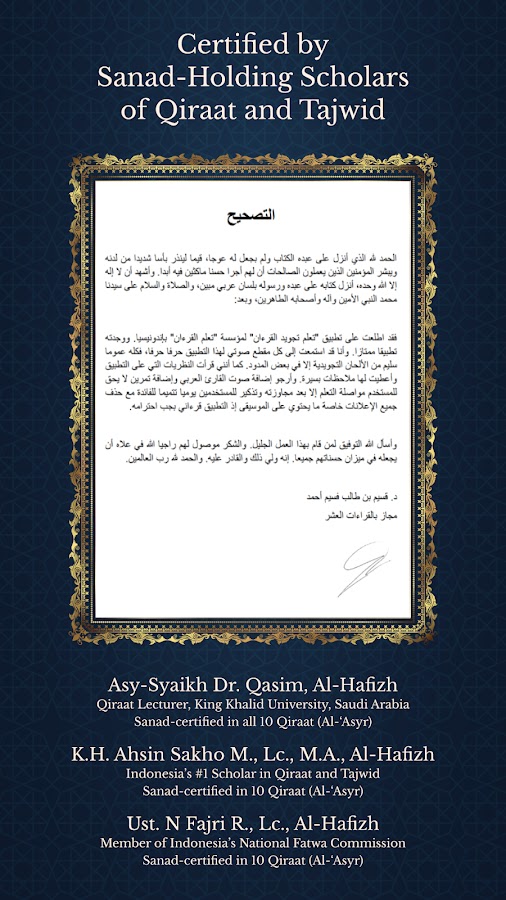 Certified by
Sanad-Holding Scholars
of Qiraat and Tajwid
التصحيح
الحمد لله الذي أنزل على عبده الكتاب ولم يجعل له عوجا، قيما لينذر بأسا شديدا من لدنه
ويبشر المؤمنين الذين يعملون الصالحات أن لهم أجرا حسنا ماكثين فيه أبدا. وأشهد أن لا إله
إلا الله وحده، أنزل كتابه على عبده ورسوله بلسان عربي مبين، والصلاة والسلام على سيدنا
محمد النبي الأمين وآله وأصحابه الطاهرين، وبعد:
فقد اطلعت على تطبيق "تعلم تجويد القرءان" لمؤسسة "تعلم القرءان" بإندونيسيا. ووجدته
تطبيقا ممتازا. وأنا قد استمعت إلى كل مقطع صوتي لهذا التطبيق حرفا حرفا، فكله عموما
سليم من الألحان التجويدية إلا في بعض المدود. كما أنني قرأت النظريات التي على التطبيق
وأعطيت لها ملاحظات يسيرة. وأرجو إضافة صوت القارئ العربي وإضافة تمرين لا يحق
للمستخدم مواصلة التعلم إلا بعد مجاوزته وتذكير للمستخدمين يوميا تتميما للفائدة مع حذف
جميع الإعلانات خاصة ما يحتوي على الموسيقى إذ التطبيق قرءاني يجب احترامه.
وأسأل الله التوفيق لمن قام بهذا العمل الجليل. والشكر موصول لهم راجيا الله في علاه أن
يجعله في ميزان حسناتهم جميعا. إنه ولي ذلك والقادر عليه. والحمد لله رب العالمين.
د. قسيم بن طالب قسيم أحمد
مجاز بالقراءات العشر
Asy-Syaikh Dr. Qasim, Al-Hafizh
Qiraat Lecturer, King Khalid University, Saudi Arabia
Sanad-certified in all 10 Qiraat (Al-‘Asyr)
K.H. Ahsin Sakho M., Lc., M.A., Al-Hafizh
Indonesia’s #1 Scholar in Qiraat and Tajwid
Sanad-certified in 10 Qiraat (Al-‘Asyr)
Ust. N Fajri R., Lc., Al-Hafizh
Member of Indonesia’s National Fatwa Commission
Sanad-certified in 10 Qiraat (Al-‘Asyr)